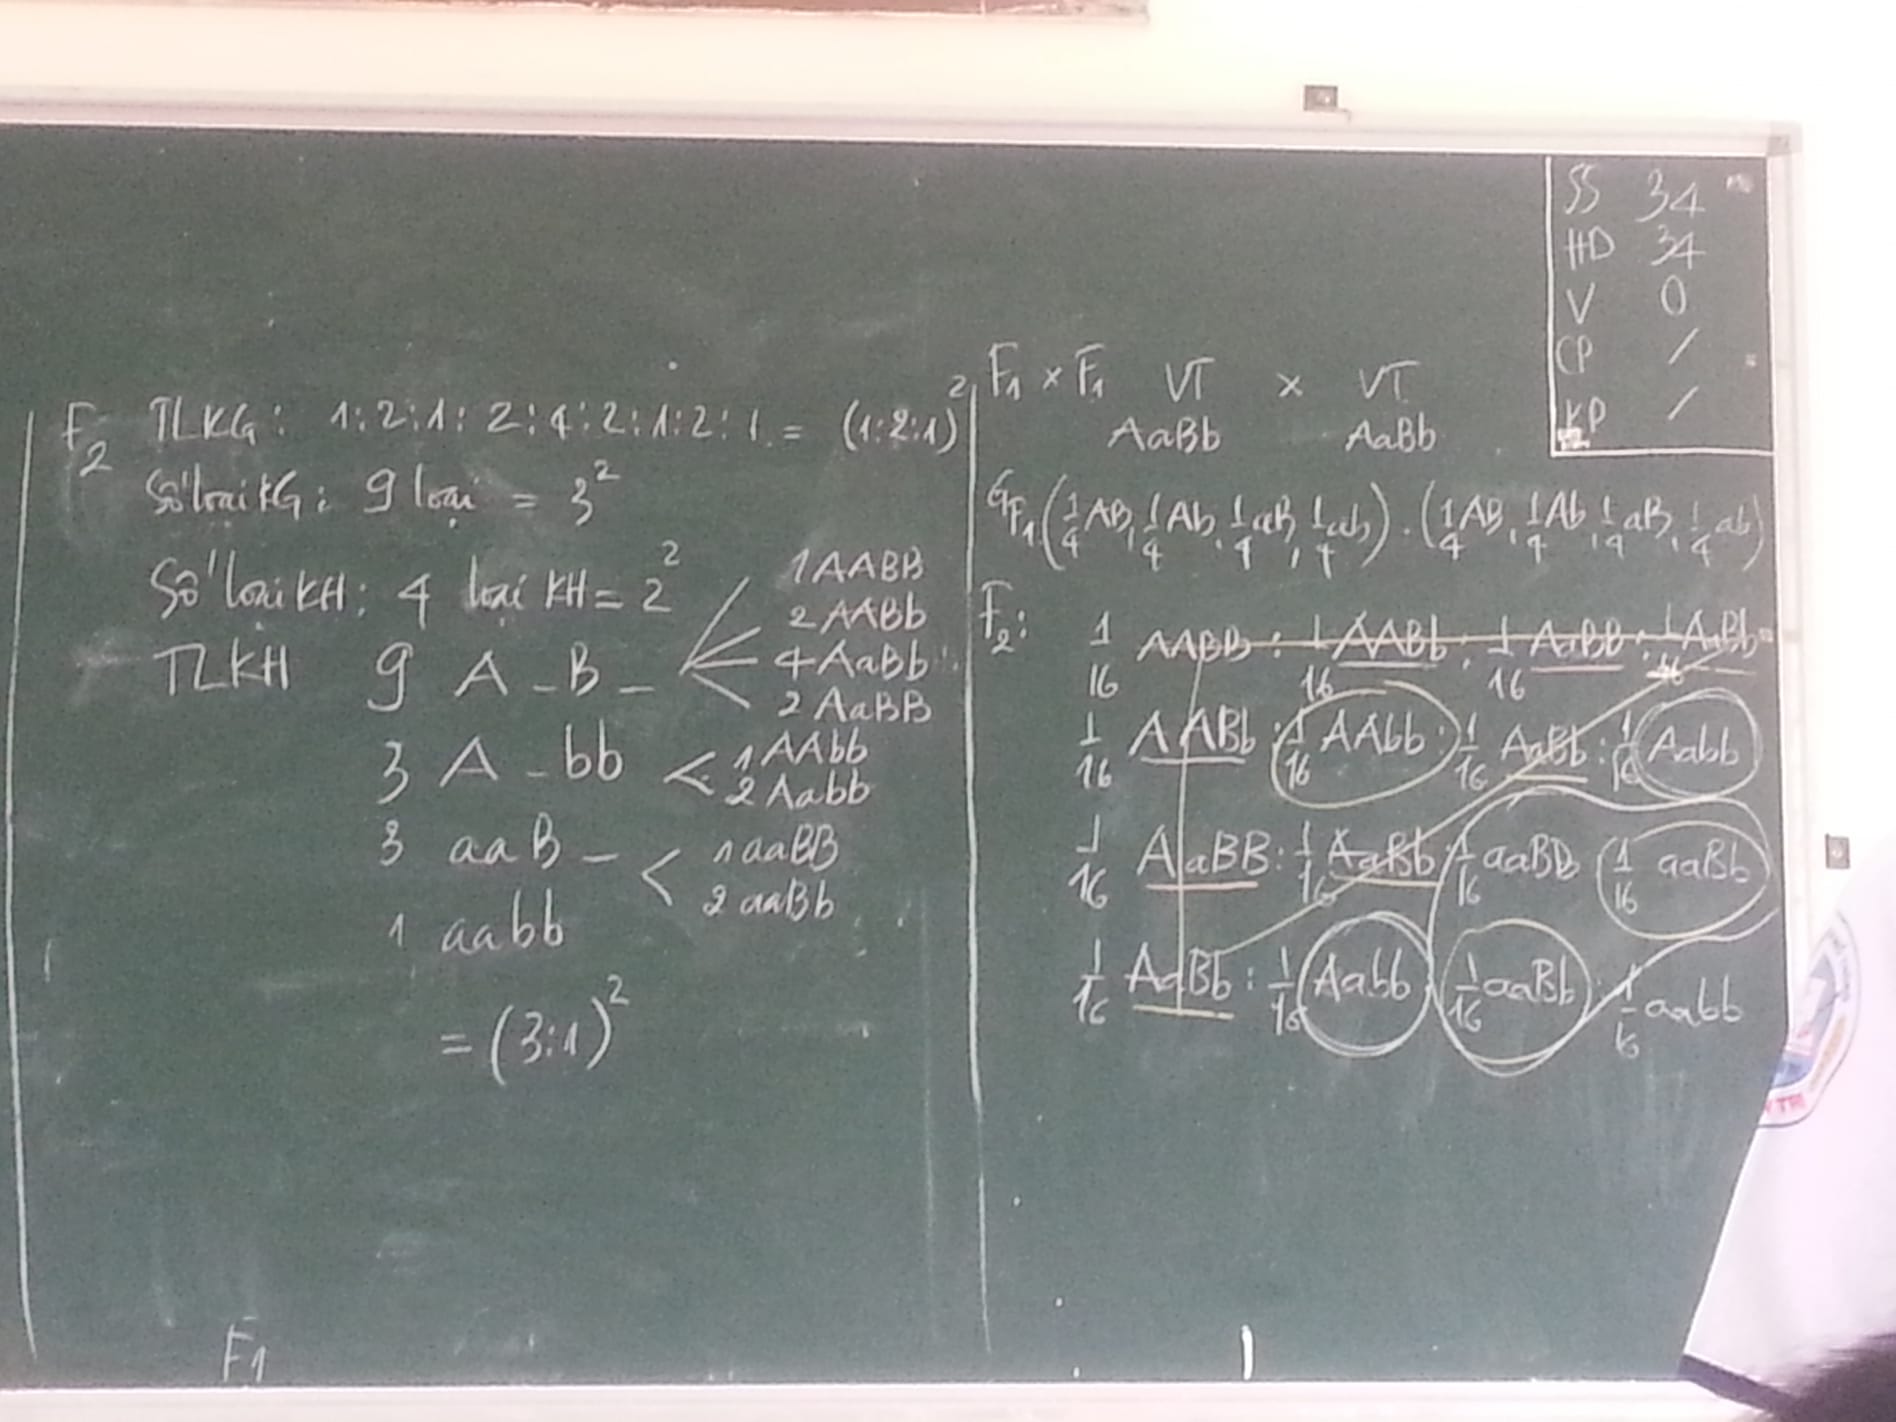 F₂ TLKG: 1:2:1:2:4:2:1:2:1 = (1:2:1)²
Số loại KG: 9 loại = 3²
Số loại KH: 4 loại KH = 2²
TLKH 9 A-B-
1AABB
2AABb
4AaBb
2AaBB
3 A-bb
1AAbb
2Aabb
3 aaB-
1aaBB
2aaBb
1 aabb
= (3:1)²
F1
F₁ × F₁ VT × VT
AaBb AaBb
G F₁ (1/4 AB, 1/4 Ab, 1/4 aB, 1/4 ab) . (1/4 AB, 1/4 Ab, 1/4 aB, 1/4 ab)
F₂: 1/16 AABB : 1/16 AABb : 1/16 AaBB : 1/16 AaBb
1/16 AABb : 1/16 AAbb : 1/16 AaBb : 1/16 Aabb
1/16 AaBB : 1/16 AaBb : 1/16 aaBB 1/16 aaBb
1/16 AaBb : 1/16 Aabb 1/16 aaBb : 1/16 aabb
SS 34
HD 34
V 0
CP /
KP /